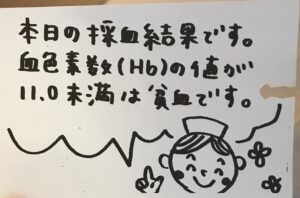 本日の採血結果です。
血色素数(Hb)の値が
11.0未満は貧血です。